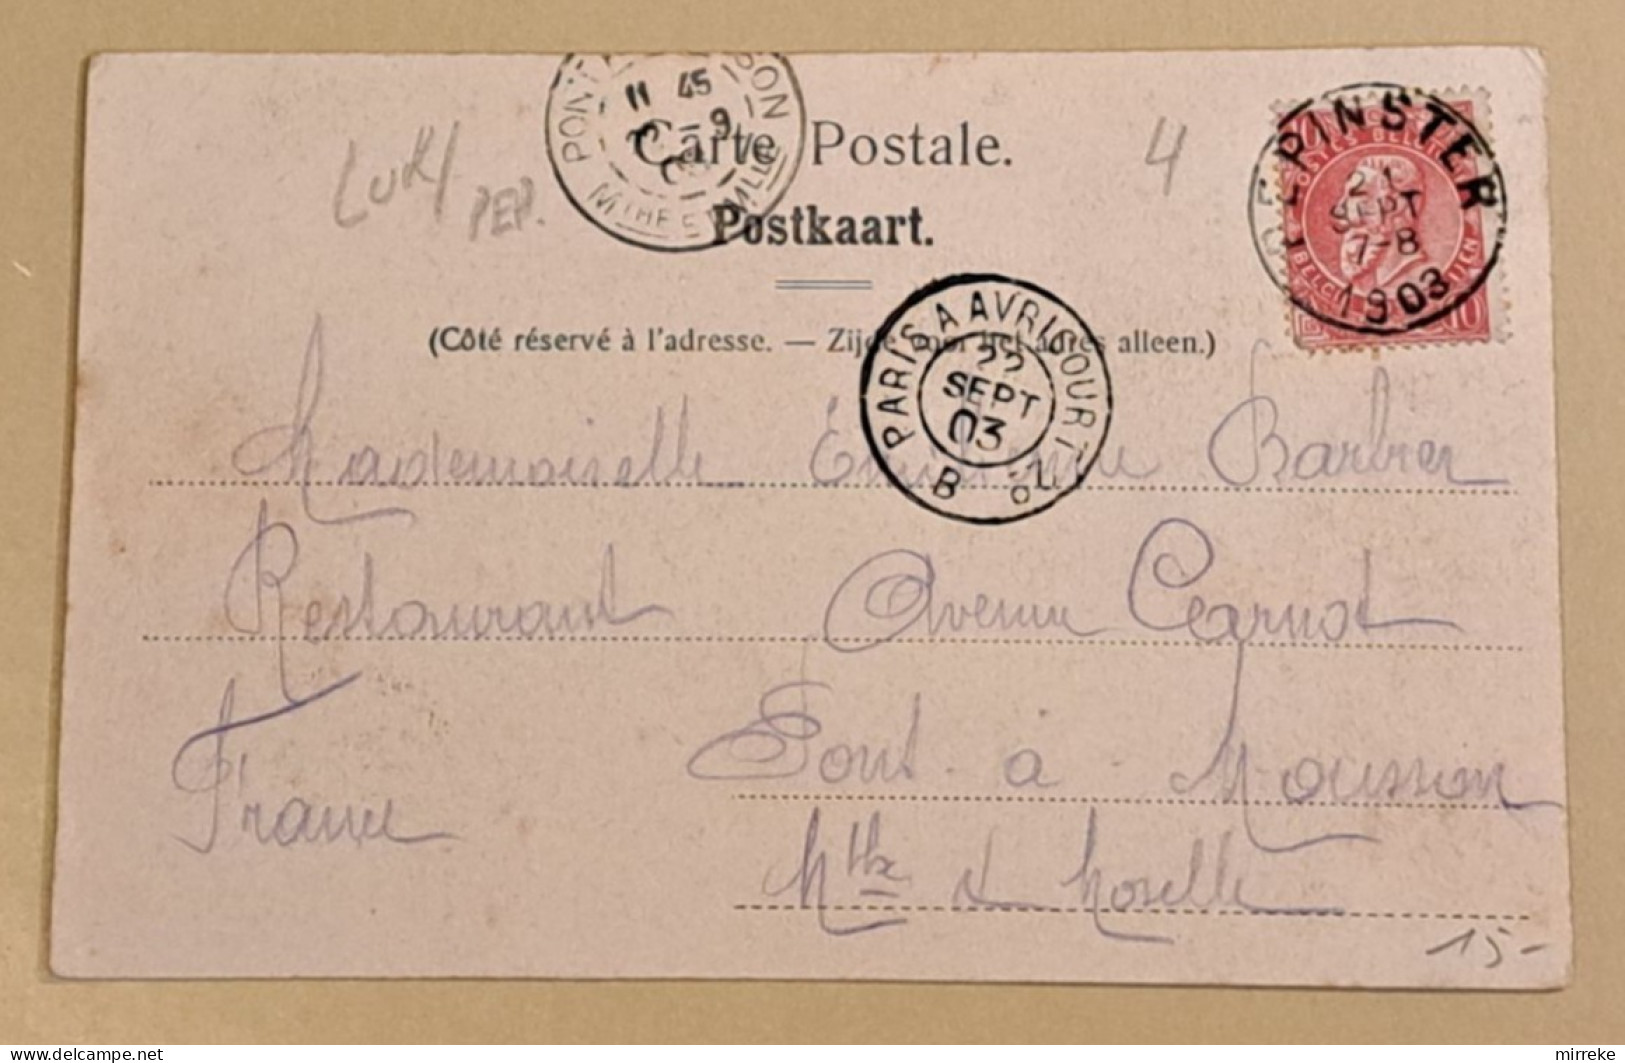 Carte Postale.
Postkaart.
(Côté réservé à l'adresse. — Zijde voor het adres alleen.)
PEPINSTER
21
SEPT
7-8
1903
PONT A MOUSSON
11 45
9
MTHE ET MLLE
PARIS A AVRICOURT
22
SEPT
03
B
4
PEP.
Mademoiselle Barbier
Restaurant Avenue Carnot
Pont à Mousson
France
Mthe & Moselle
15-
delcampe.net
mirreke